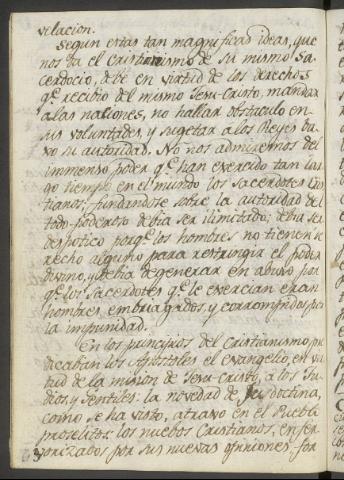 velacion.
Segun estas tan magnificas ideas, que
nos da el Cristianismo de su mismo Sa-
cerdocio, debe en virtud de los derechos
qe. recibio del mismo Jesu-Cristo, mandar
a las naciones, no hallar obstaculo en
sus voluntades, y sugetar a los Reyes ba-
xo su autoridad. No nos admiremos del
immenso poder qe. han exercido tan lar-
go tiempo en el mundo los Sacerdotes Cris-
tianos: fundandose sobre la autoridad del
todo-poderoso debia ser ilimitado; debia ser
despotico porqe. los hombres no tienen de-
recho alguno para restringir el poder
divino, y debia degenerar en abuso por
qe. los Sacerdotes qe. le exercian eran
hombres embriagados, y corrompidos por
la impunidad.
En los principios del Cristianismo pre-
dicaban los Apostoles el evangelio, en vir-
tud de la mision de Jesu-Cristo, a los Ju-
dios, y Gentiles: la novedad de su doctrina,
como se ha visto, atraxo en el Pueblo
proselitos: los nuebos Cristianos, enfer-
vorizados por sus nuevas opiniones, for